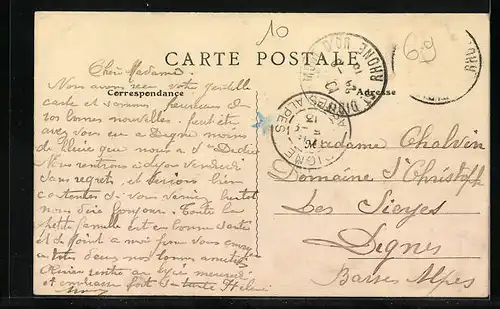 10
69
CARTE POSTALE
Correspondance
Adresse
Chère Madame.
Nous avons reçu votre gentille
carte et sommes heureux de
vos bonnes nouvelles. Peut être
avez vous eu à Digne moins
de pluie que nous à St Didier
Nous rentrons à Lyon vendredi
sans regrets, et serions bien
contentes si vous veniez bientot
nous dire bonjour. Toute la
petite famille est en bonne santé
et se joint à moi pour vous envoyer
nos bonnes amitiés
rentre au lycée mercredi
et embrasse fort sa tante Hélène
Madame Chalvin
Domaine St Christophe
Les Sieyes
Dignes
Basses Alpes
RHONE
DIGNE
ALPES